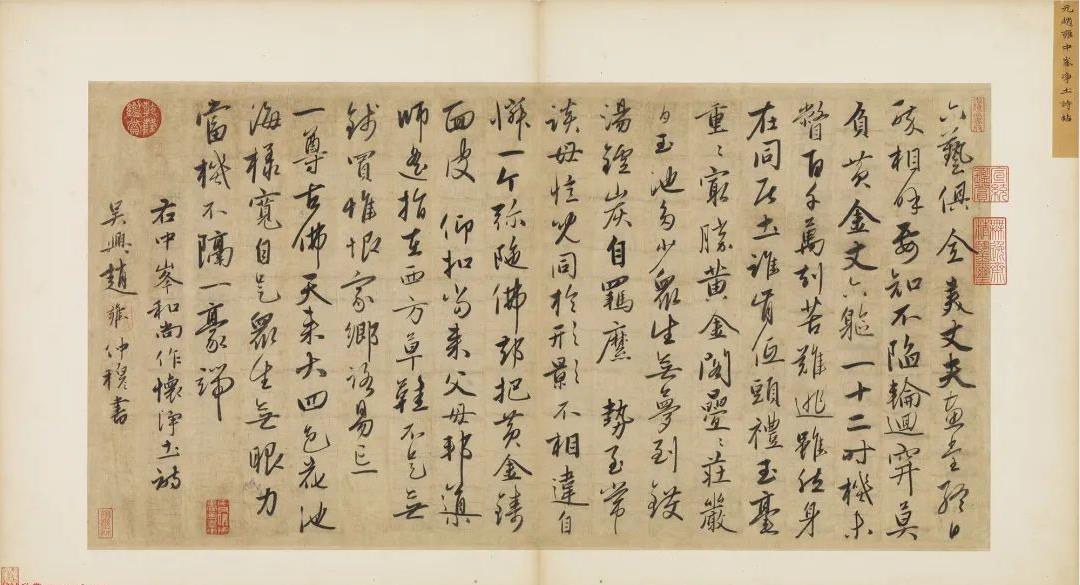 元趙雍中峯淨土詩帖
六藝俱全美丈夫畫堂終日
相呼要知不陷輪迴穽莫
負黃金丈六軀一十二時機未
瞥百千萬刻苦難逃雖然身
在同居土誰肯低頭禮玉毫
重〻最勝黃金閣疊〻莊嚴
白玉池多少眾生無夢到鑊
湯鑪炭自羈縻 勢至常
談母憶兒同於形影不相違自
慚一个彌陀佛卻把黃金鑄
面皮 仰扣來父母
師遙指在西方草鞋不是無
錢買惟恨家鄉路易忘
一尊古佛天來大四色花池
海樣寬自是眾生無眼力
當機不隔一毫端
右中峯和尚作懷淨土詩
吳興趙雍仲穆書
乾隆鑑賞
宣統鑑賞
無逸齋精璽